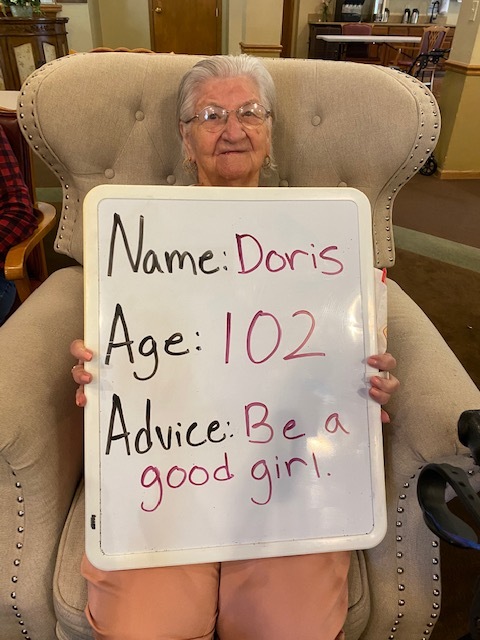 Name: Doris
Age: 102
Advice: Be a
good girl.